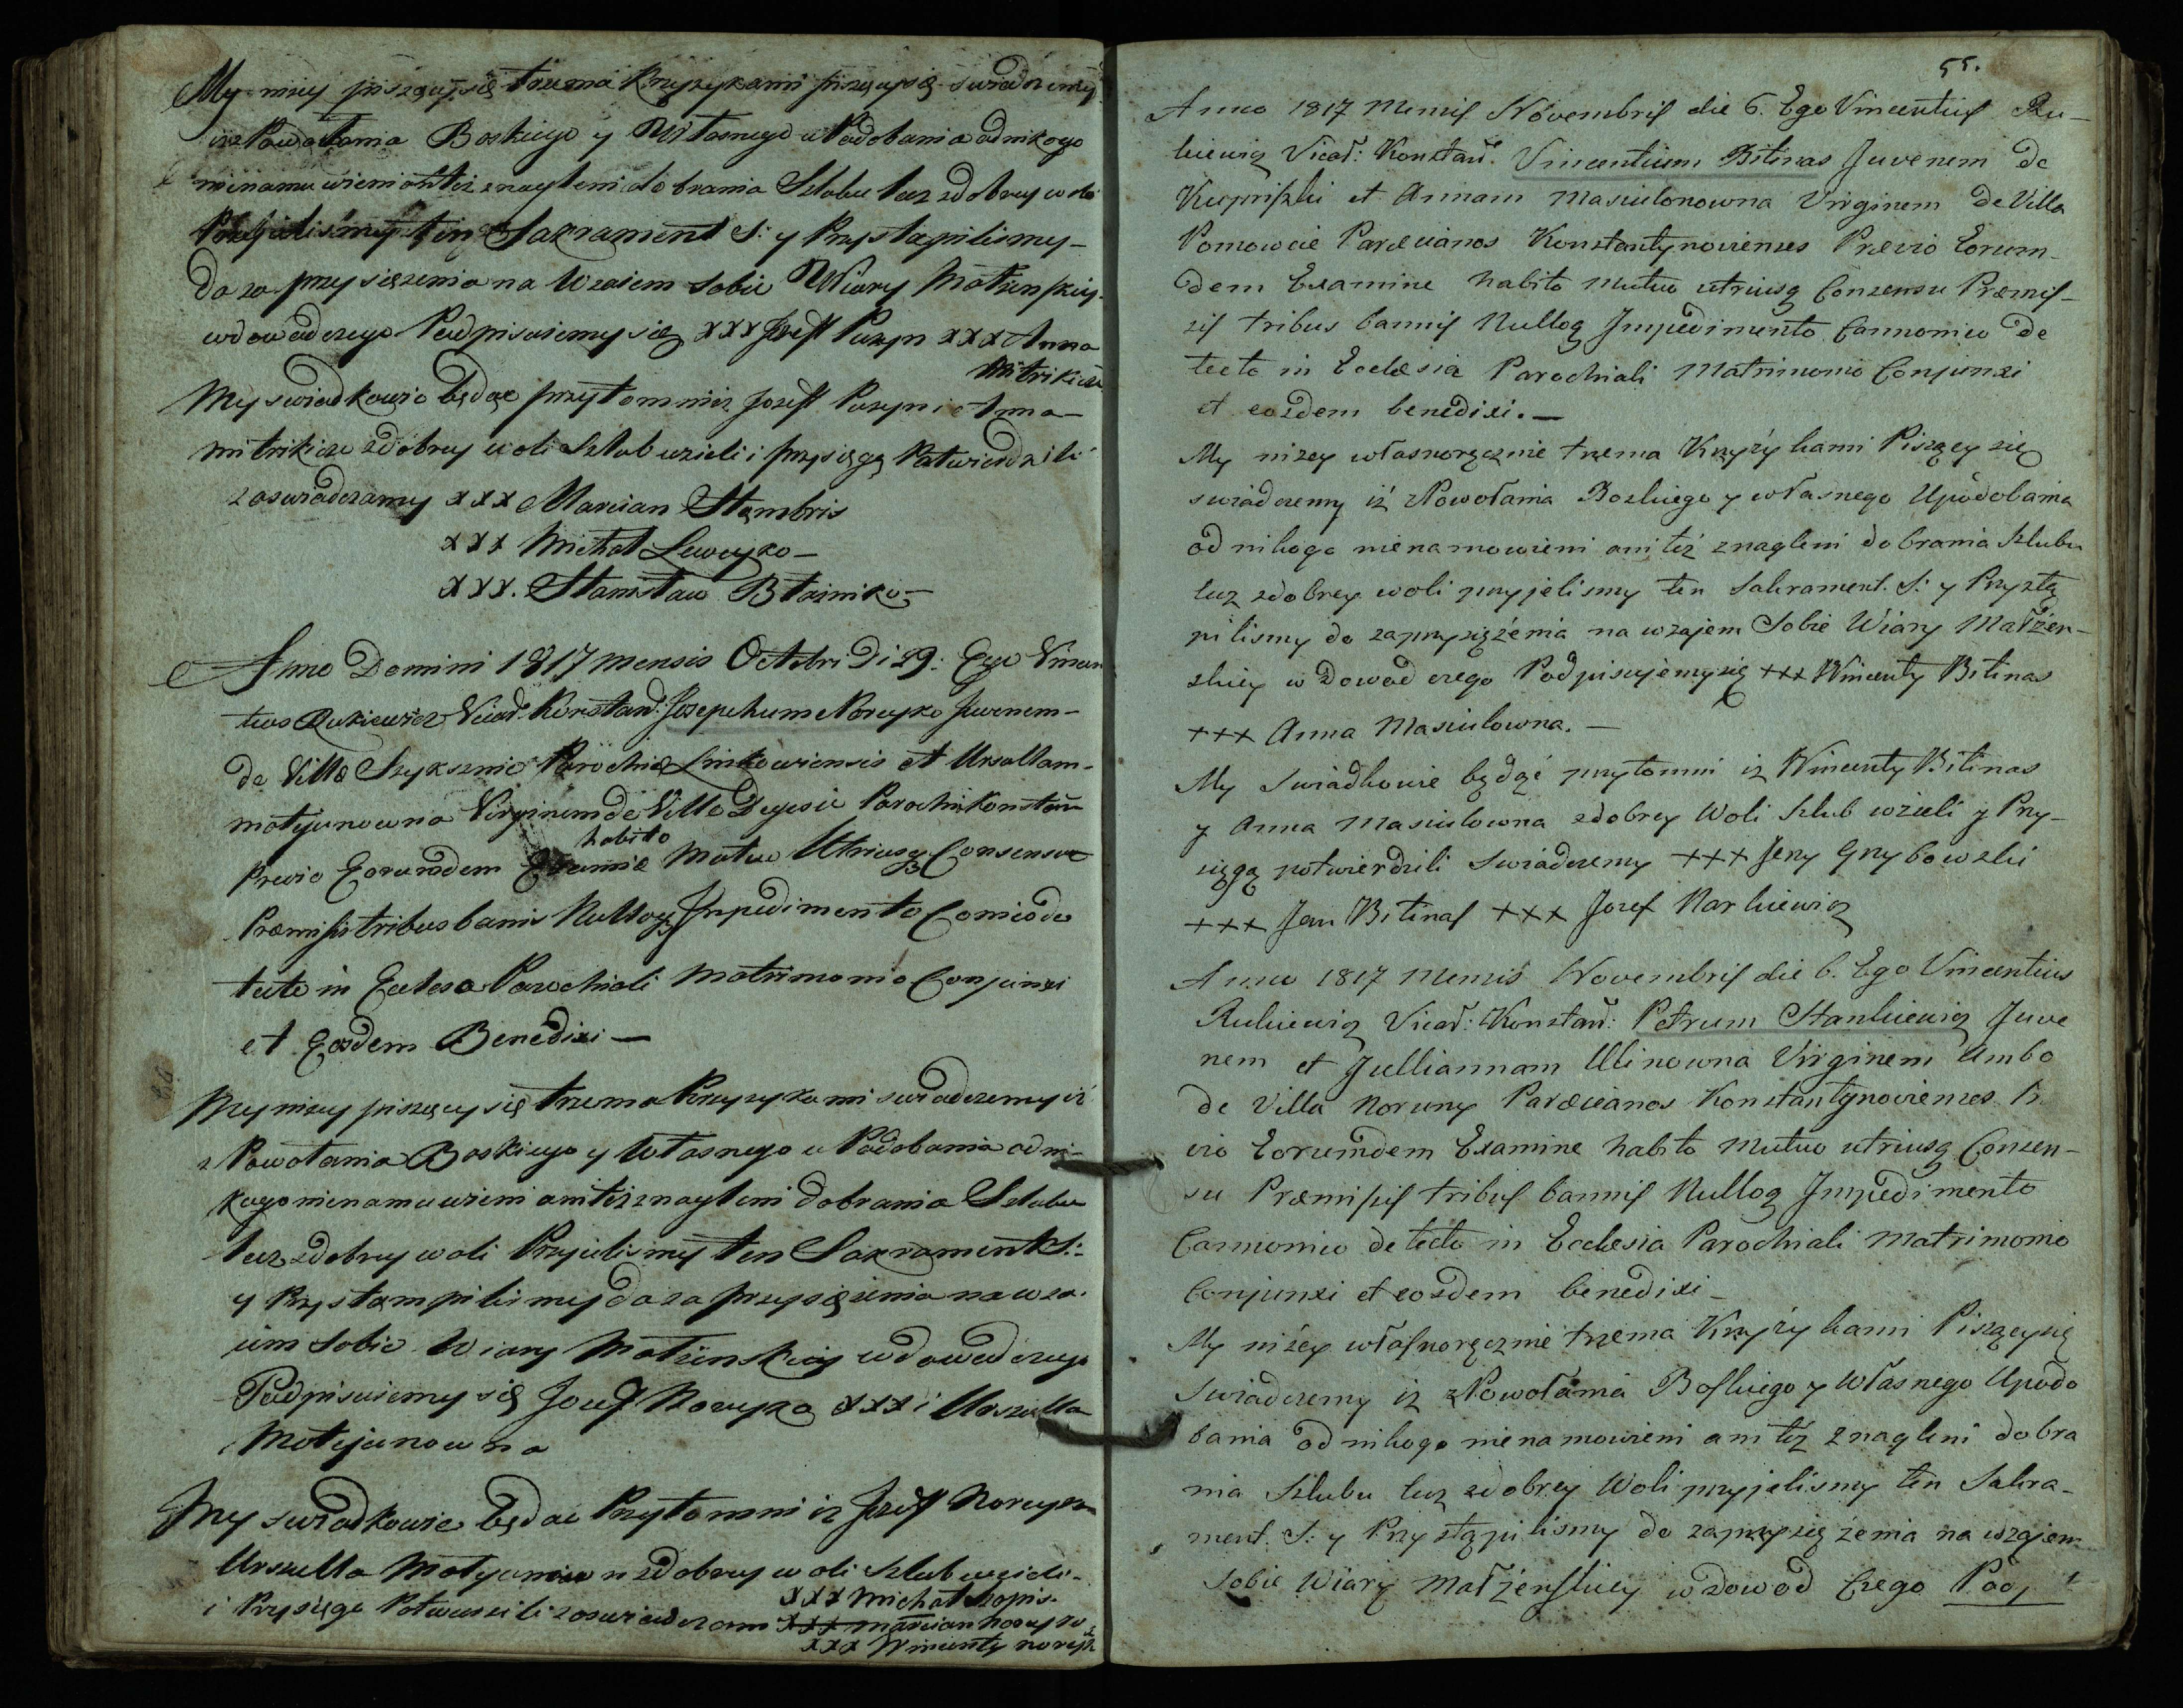 My niżey piszący się trzema Krzyżykami piszącysię swiadczemy
iż z Powołania Boskiego y Własnego u Podobania od nikogo
nienamuwieni anitéż znagleni do brania Szlubu lecz zdobrey woli
Przyieliśmy tęn Sakrament S: y Przystąpilismy
do za przysięzenia na Wzaiem sobie Wiary Małżenskiey
wdowod czego Podpisuiemy się xxx Jozeff Puzyn xxx Anna
Mitrikicze
My swiadkowie będąc przytomni iż Jozeff Puzyn i Anna
Mitrikicze zdobrey woli Szlub wzieli i przysięgą Potwierdzili
zaswiadczamy xxx Marcian Stambris
xxx Michał Leweyko
xxx. Stanisław Btainiko
Anno Domini 1817 mensis Octobri Di 29. Ego Vincen
tius Rukiewicz Vicař Konstanť. Josephum Noreyko Juvenem
de Villa Szyksznie Parochia Linkowiensis et Ursullam
Motyunowna Virginem de Villa Degesie Parochii Konstan
habito
Previo Eorumdem Examine Mutuo Utriusq Consensu
Præmissis tribus banis Nulloq Impedimento Conico de
tecto in Eclesia Parochiali Matrimonio Conjunxi
et Eosdem Benedixi —
My niżey piszęcy się trzema Krzyzykami swiadczemy iż
z Powołania Boskiego y Własnego u Podobania od ni-
kogo nienamuwieni anitéż znagleni do brania Szlubu
lecz zdobrey woli Przyielismy ten Sakrament S:
y Przystąmpilismy do za przysięzenia nawza
iem sobie Wiary Małżenskiey wdowod czego
Podpisuiemy się Jozef Noreyko xxx i Urszulla
Motyjunowna
My swiadkowie będac Przytomni iż Jozeff Noreyko
Urszulla Motyunown zdobrey woli Szlub wzieli
i Przysięga Potwierzili zaswiadczamy
xxx Michał Szopis.
xxx marcian noreyko
xxx Wincenty noreyk
55.
Anno 1817 Mensis Novembris die 6. Ego Vincentius Ru-
kiewicz Vicař: Konstanť. Vincentium Bitinas Juvenem de
Kupriszki et Annam Masiulonowna Virginem de Villa
Pomowcie Parœcianos Konstantynovienses Prævio Eorum-
dem Examine habito Mutuo utriusq Consensu Præmis-
sis tribus bannis Nulloq Impedimento Cannonico de
tecto in Ecclesia Parochiali Matrimonio Conjunxi
et eosdem benedixi. —
My nizey własnoręcznie trzema Krzyżykami Piszącysię
swiadczemy iż z Powołania Boskiego y własnego Upodobania
od nikogo nienamowieni ani téż znagleni do brania szlubu
lecz zdobrey woli przyjelismy ten Sakrament. S: y Przystą
pilismy do zaprzysiężenia na wzajem Sobie Wiary Małżen-
skiey w dowod czego Podpisujemysię +++ Wincenty Bitinas
+++ Anna Masiulowna. —
My Swiadkowie będąć przytomni iz Wincenty Bitinas
y Anna Masiulowna zdobrey Woli Szlub wzieli y Przy-
sięgą potwierdzili Swiadczemy +++ Jerzy Grybowski
+++ Jan Bitinas +++ Jozef Narkiewicz
Anno 1817 Mensis Novembris die 6. Ego Vincentius
Rukiewicz Vicař: Konstanť: Petrum Stankiewicz Juve
nem et Julliannam Ulinowna Virginem Ambo
de Villa Noruny Parœcianos Konstantynovienses Præ
vio Eorumdem Examine habito Mutuo utriusq Consen-
su Præmissis tribus bannis Nulloq Impedimento
Cannonico detecto in Ecclesia Parochiali Matrimonio
Conjunxi et eosdem benedixi —
My niżey własnoręcznie trzema Krzyżykami Piszącysię
Swiadczemy iż z Powołania Boskiego y Własnego Upodo
bania od nikogo nienamowieni ani téż znagleni do bra
nia Szlubu lecz zdobrey Woli przyjelismy ten Sakra-
ment. S: y Przystąpilismy do zaprzysiężenia na wzajem
Sobie Wiary Małżenskiey w dowod Czego Podp